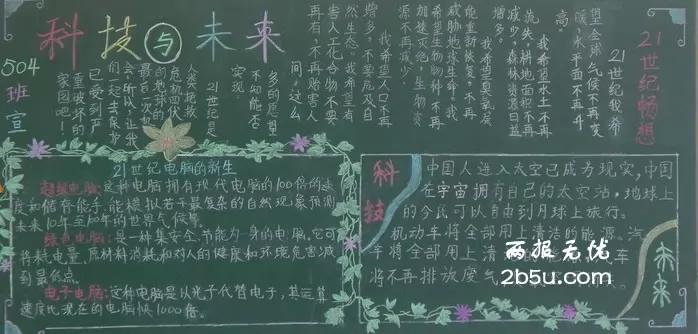 科技与未来
504
班
宣
21世纪畅想
21世纪我希
望全球气候不再变
暖，水平面不再升
高。
我希望水土不再
流失，耕地面积不再
减少，森林资源日益
增多。
我希望臭氧层
能重新恢复，不再
威胁地球生命。我
希望生物物种不再
加速灭绝，生物资
源不再减少。
我希望人口不再
增多，不要危及自
然生态。我希望有
害人工化合物不要
再有，不再贻害人
间，这么
多的愿望
不知能否
实现。
21世纪是
人类
危机四伏
的地球的
最后一次机
会，所以，让我
们一起去保护
已受到严
重破坏的
家园吧！
21世纪电脑的新生
超级电脑：这种电脑拥有现代电脑的100倍的速
度和储存能手，能模拟若干最复杂的自然现象预测
未来10年至100年的世界气候等。
绿色电脑：是一种集安全、节能为一身的电脑，它可
将耗电量、原材料消耗和对人的健康和环境危害减
到最低点。
电子电脑：这种电脑是以光子代替电子，其运算
速度比现在的电脑快1000倍。
科技
中国人进入太空已成为现实，中国
在宇宙拥有自己的太空站，地球上
的今民可以自由到月球上旅行。
机动车将全部用上清洁的能源。汽
车将全部用上清洁的能 车
将不再排放废气
未来
两报无优
2b5u.com